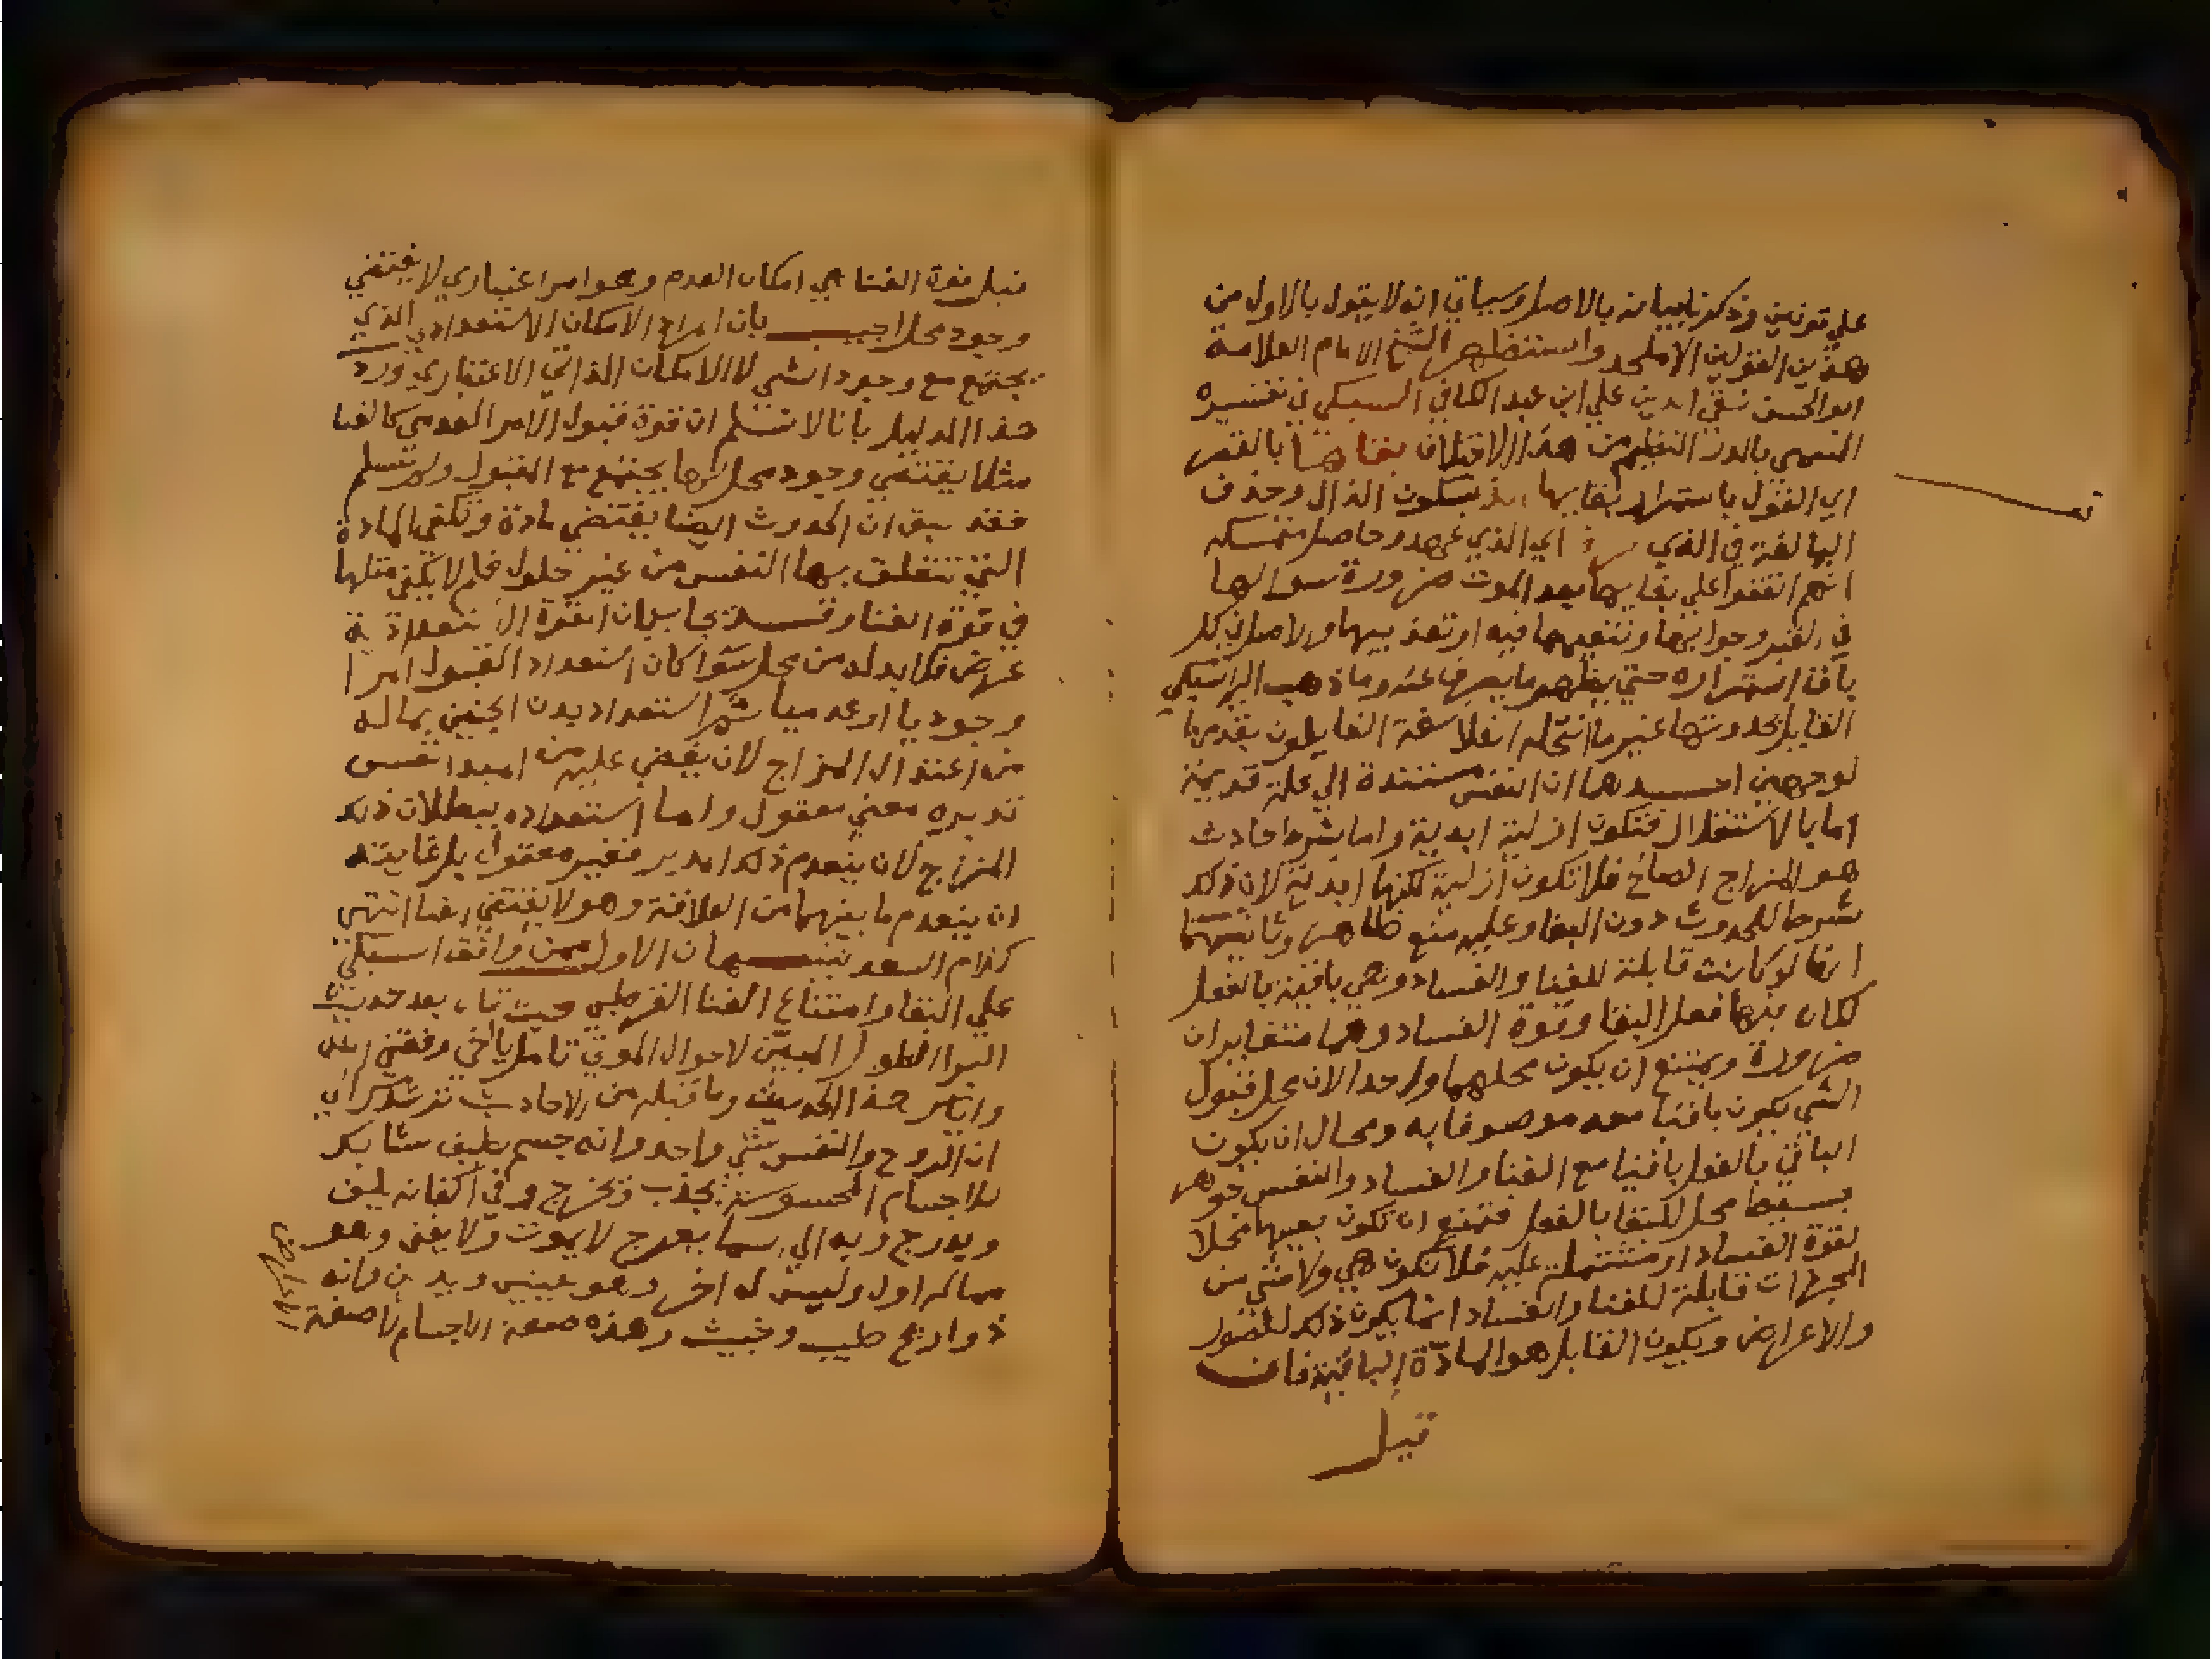 على قولين وذكرنا بيانه بالاصل وسياتي انه لا يقول بالاول من
هذين القولين الا ملحد واستظهر الشيخ الامام العلامة
ابو الحسن تقي الدين علي ابن عبد الكافي السبكي في تفسيره
المسمي بالدر النظيم من هذا الاختلاف بقاها بالقصر
اي القول باستمرار بقايها الذ بسكون الذال وحذف
اليا لغة في الذي اي الذي عهد وحاصل متمسكه
انهم اتفقوا علي بقايها بعد الموت ضرورة سوالها
في القبر وجوابها وتنعيمها فيه او تعذيبها والاصل في كل
باق استمراره حتي يظهر ما يصرف عنه وما ذهب اليه السبكي
القايل بحدوثها غير ما انتحله الفلاسفة القايلون بقدمها
لوجهين احدهما ان النفس مستندة الي علة قديمة
اما بالاستقلال فتكون ازلية ابدية واما بشرط حادث
هو المزاج الصالح فلا تكون ازلية لكنها ابدية لان ذلك
شرط للحدوث دون البقا وعليه منع ظاهر وثانيهما
انها لو كانت قابلة للفنا والفساد وهي باقية بالفعل
لكان فيها فعل البقا وقوة الفساد وهما متغايران
ضرورة ويمتنع ان يكون محلهما واحدا لان محل قبول
الشي يكون باقيا معه موصوفا به ومحال ان يكون
الباقي بالفعل باقيا مع الفنا والفساد والنفس جوهر
بسيط محل للبقا بالفعل فتمنع ان تكون بعينها محلا
لقوة الفساد او مشتملة عليه فلا تكون هي ولا شي من
المجردات قابلة للفنا والفساد انما يكون ذلك للصور
والاعراض ويكون القابل هو المادة الباقية فان
قيل
قيل قوة الفنا هي امكان العدم وهو امر اعتباري لا يقتضي
وجود محل اجيب بان المراد الامكان الاستعدادي الذي
يجتمع مع وجود الشي لا الامكان الذاتي الاعتباري ورد
هذا الدليل بانا لا نسلم ان قوة قبول الامر العدمي كالفنا
مثلا يقتضي وجود محل لها يجتمع مع القبول ولو سلم
فقد سبق ان الحدوث ايضا يقتضي مادة وتكفي المادة
التي تتعلق بها النفس من غير حلول فلم لا يكفي مثلها
في قوة الفنا وقد يجاب بان القوة الاستعدادية
عرض فلا بد له من محل سوا كان استعداد القبول امرا
وجوديا او عدميا ثم استعداد بدن الجنين بما له
من اعتدال المزاج لان يفيض عليه من المبدا نفس
تدبره معني معقول واما استعداده ببطلان ذلك
المزاج لان ينعدم ذلك المدبر فغير معقول بل غايته
ان ينعدم ما بينهما من العلاقة وهو لا يقتضي الفنا انتهي
كلام السعد تنبيهان الاول ممن وافق السبكي
علي البقا وامتناع الفنا القرطبي حيث قال بعد حديث
البرا الطويل المبين لاحوال الموتي تامل يا اخي وفقني الله
واياك هذا الحديث وما قبله من الاحاديث ترشدك الي
ان الروح والنفس شي واحد وانه جسم لطيف مشابك
للاجسام المحسوسة يجذب ويخرج وفي اكفانه يلف
ويدرج وبه الي السما يعرج لا يموت ولا يفني وهو
مما له اول وليس له اخر وهو بعينين ويدين وانه
ذو اريح طيب وخبيث وهذه صفة الاجسام لا صفة
الاعراض